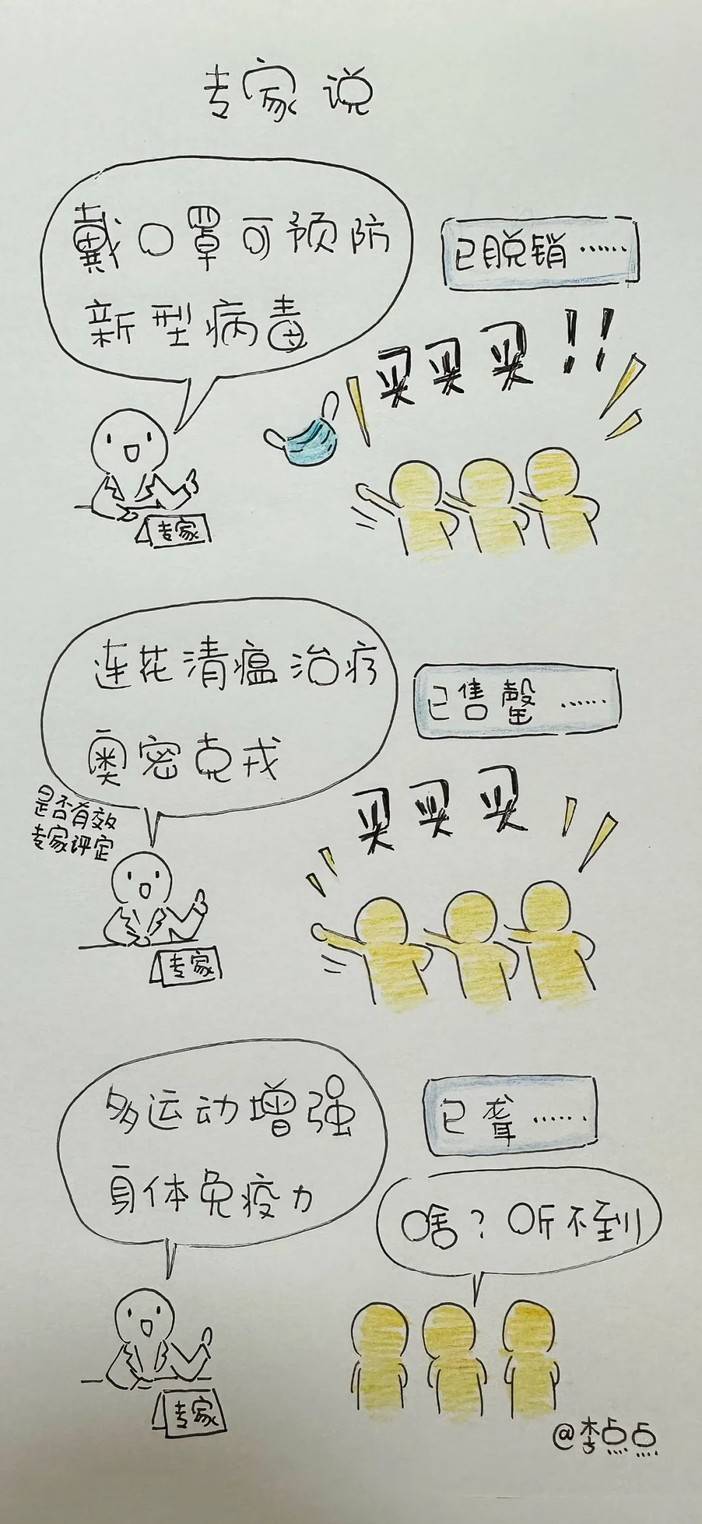 专家说
戴口罩可预防
新型病毒
已脱销……
买买买!!
专家
连花清瘟治疗
奥密克戎
已售罄……
是否有效
专家评定
买买买
专家
多运动增强
身体免疫力
已聋……
啥?听不到
专家
@李点点